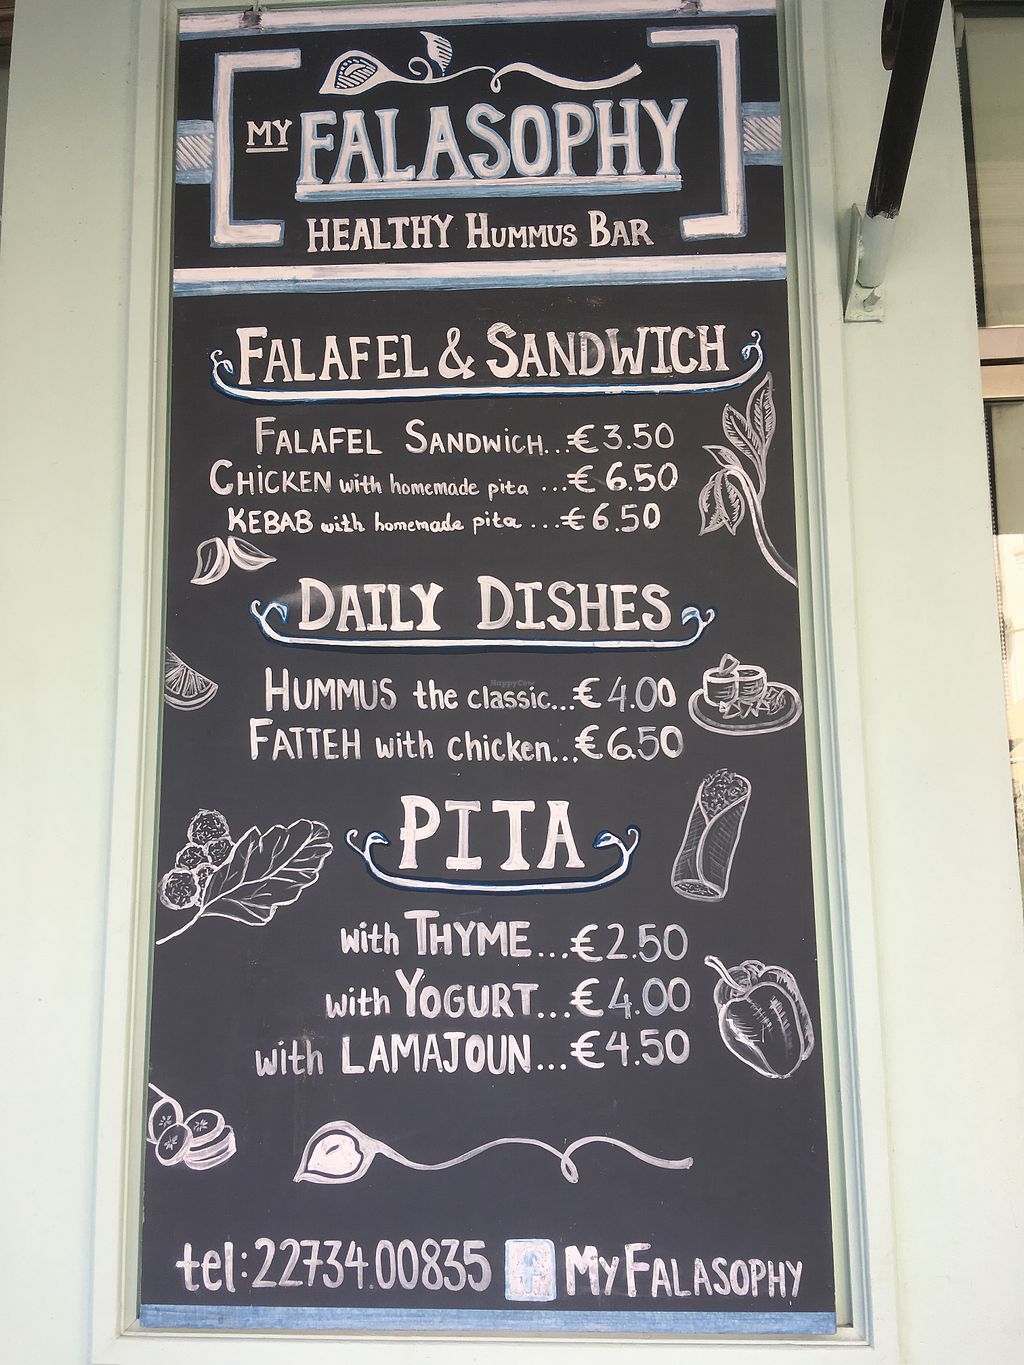 MY FALASOPHY
HEALTHY HUMMUS BAR
FALAFEL & SANDWICH
FALAFEL SANDWiCH...€3.50
CHiCKEN with homemade pita ...€ 6.50
KEBAB with homemade pita ...€6.50
DAILY DISHES
HappyCow
HUMMUS the classic...€ 4.00
FATTEH with chicken...€6.50
PITA
with THYME...€2.50
with YOGURT...€4.00
with LAMAJOUN...€4.50
tel:22734.00835 f MY FALASOPHY